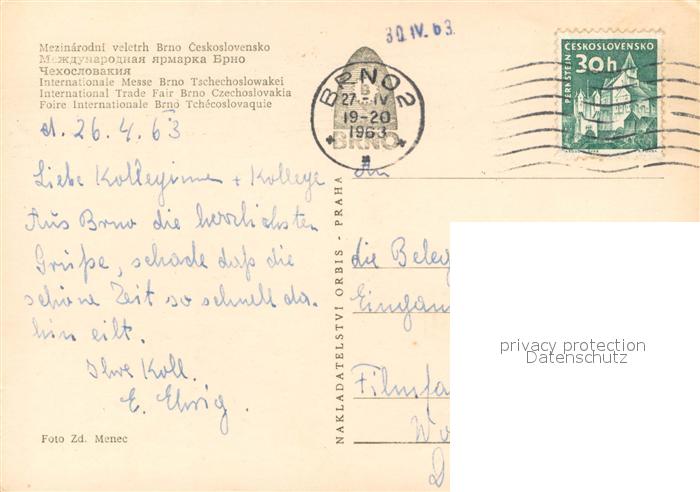 Mezinárodní veletrh Brno Československo
Международная ярмарка Брно
Чехословакия
Internationale Messe Brno Tschechoslowakei
International Trade Fair Brno Czechoslovakia
Foire Internationale Brno Tchécoslovaquie
d. 26.4.63
Liebe Kolleginnen + Kollege
Aus Brno die herrlichsten
Grüße, schade daß die
schöne Zeit so schnell da-
hin eilt.
Ihre Koll.
E.
Foto Zd. Menec
NAKLADATELSTVÍ ORBIS - PRAHA
30.IV.63
BRNO 2
27.-IV
19-20
1963
BRNO
ČESKOSLOVENSKO
30h
PERNŠTEJN
An
die Beleg
Eingan
Filmfa
Wo
D
privacy protection
Datenschutz